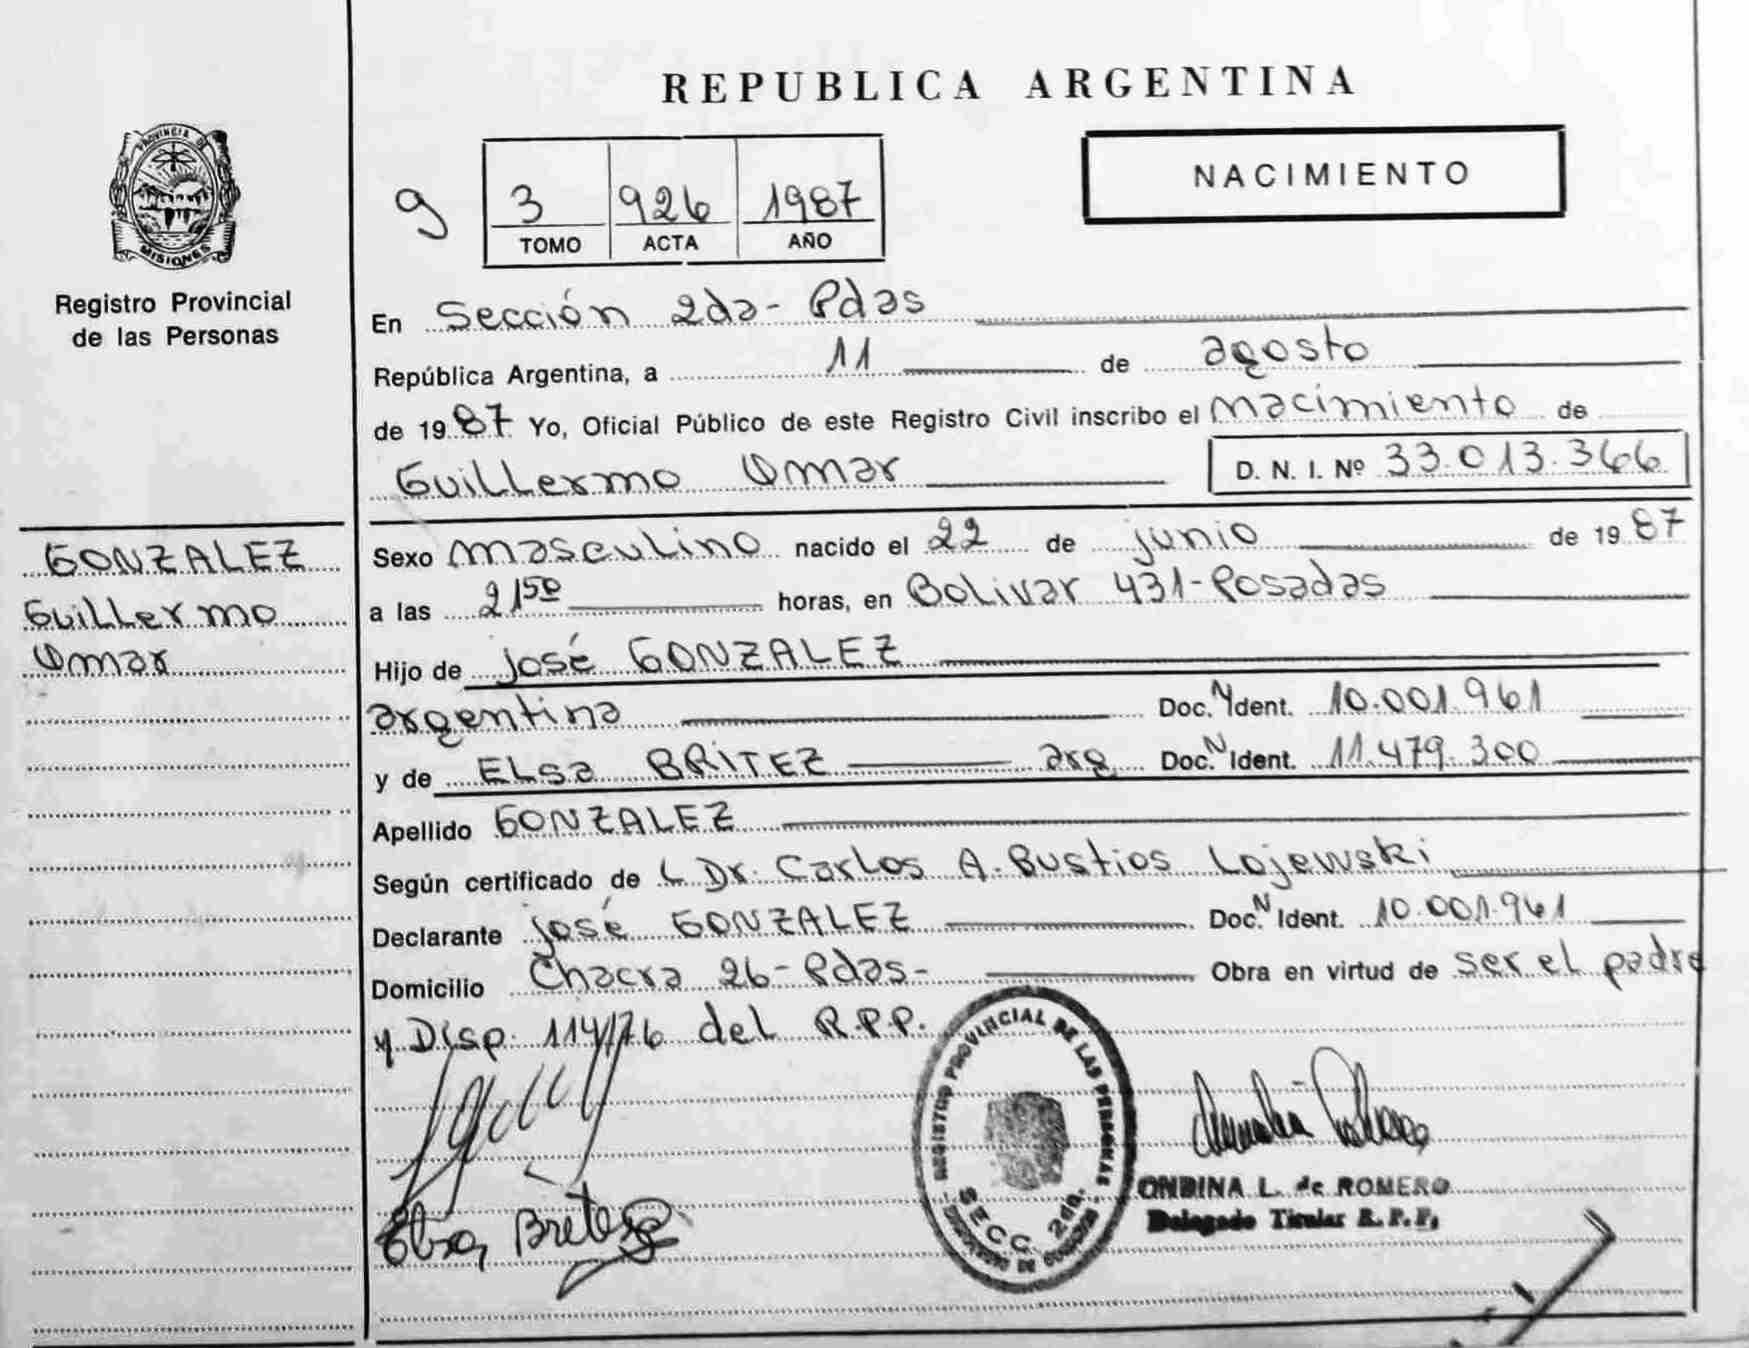 REPUBLICA ARGENTINA
PROVINCIA DE
MISIONES
Registro Provincial
de las Personas
9
3 926 1987
TOMO ACTA AÑO
NACIMIENTO
En Sección 2da- Pdas
República Argentina, a 11 de agosto
de 1987 Yo, Oficial Público de este Registro Civil inscribo el nacimiento de
Guillermo Omar D. N. I. Nº 33.013.366
GONZALEZ
Guillermo
Omar
Sexo masculino nacido el 22 de junio de 1987
a las 21 50 horas, en Bolivar 431-Posadas
Hijo de José GONZALEZ
argentina Doc. N Ident. 10.001.961
y de ELsa BRITEZ arg Doc. N Ident. 11.479.300
Apellido GONZALEZ
Según certificado de L Dr. Carlos A. Bustios Lojewski
Declarante José GONZALEZ Doc. N Ident. 10.001.961
Domicilio Chacra 26-Pdas- Obra en virtud de ser el padre
y Disp. 114/76 del R.P.P.
REGISTRO PROVINCIAL DE LAS PERSONAS
SECC. 2da.
Elsa Britez
ONDINA L. de ROMERO
Delegado Titular R. P. P.